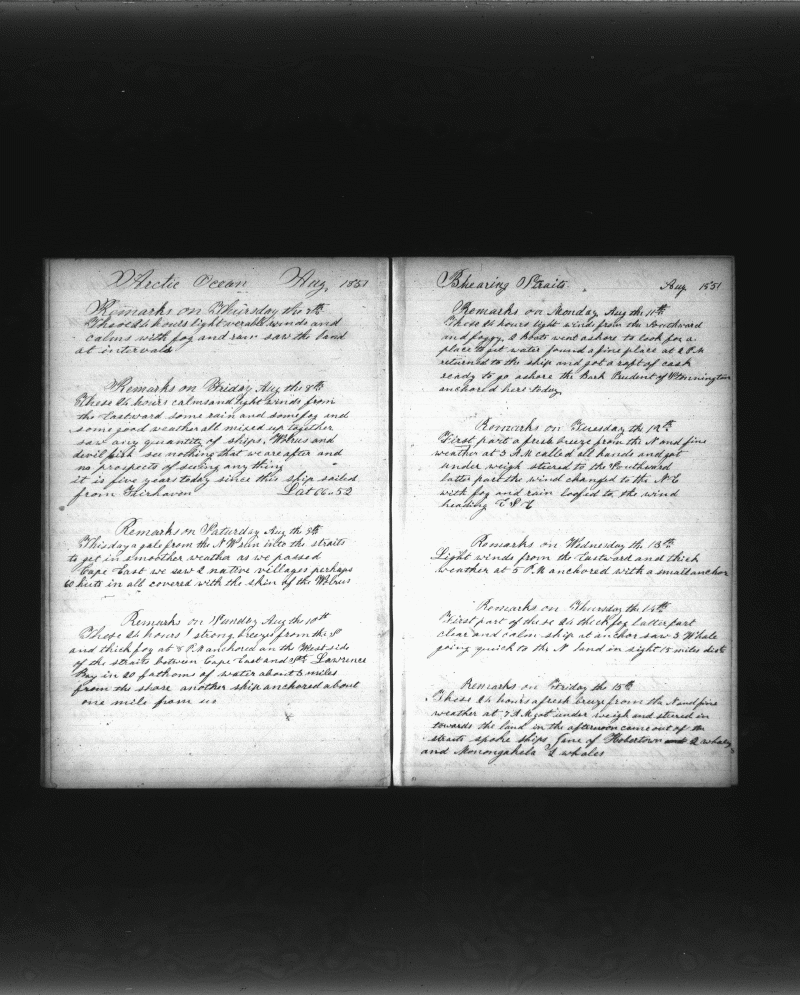 Arctic Ocean Aug, 1851
Remarks on Thursday the 7th
These 24 hours light verable winds and
calms with fog and rain saw the land
at intervals
Remarks on Friday Aug the 8th
These 24 hours calms and light winds from
the Eastward some rain and some fog and
some good weather all mixed up together
saw any quantity of ships, Wolrus and
devil fish see nothing that we are after and
no prospects of seeing any thing
it is five years today since this ship sailed
from Fairhaven Lat 66 " 52
Remarks on Saturday Aug the 9th
This day a gale from the N W run into the straits
to get in smoother weather as we passed
Cape East we saw 2 native villages perhaps
60 huts in all covered with the skin of the Wolrus
Remarks on Sunday Aug the 10th
These 24 hours strong breeze from the S
and thick fog at 8 P.M anchored on the West side
of the straits between Cape East and St Lawrence
Bay in 20 fathoms of water about 3 miles
from the shore another ship anchored about
one mile from us
Bhearing Straits Aug 1851
Remarks on Monday Aug the 11th
These 24 hours light winds from the Southward
and foggy, 2 Boats went ashore to look for a
place to get water found a fine place at 2 P.M
returned to the ship and got a raft of cask
ready to go ashore the Bark Prudent of Stonnington
anchored here today
Remarks on Tuesday the 12th
First part a fresh breeze from the N and fine
weather at 3 A.M called all hands and got
under weigh steered to the Southward
latter part the wind changed to the N E
with fog and rain loofed to the wind
heading E S E
Remarks on Wednesday the 13th
Light winds from the Eastward and thick
weather at 5 P.M anchored with a small anchor
Remarks on Thursday the 14th
First part of these 24 thick fog latter part
clear and calm ship at anchor saw 3 Whale
going quick to the N land in sight 15 miles dist
Remarks on Friday the 15th
These 24 hours a fresh breeze from the N and fine
weather at 7 A.M got under weigh and steered in
towards the land in the afternoon came out of the
straits spoke ships Jane of Hobertown 2 whales
and Monongahela 2 whales